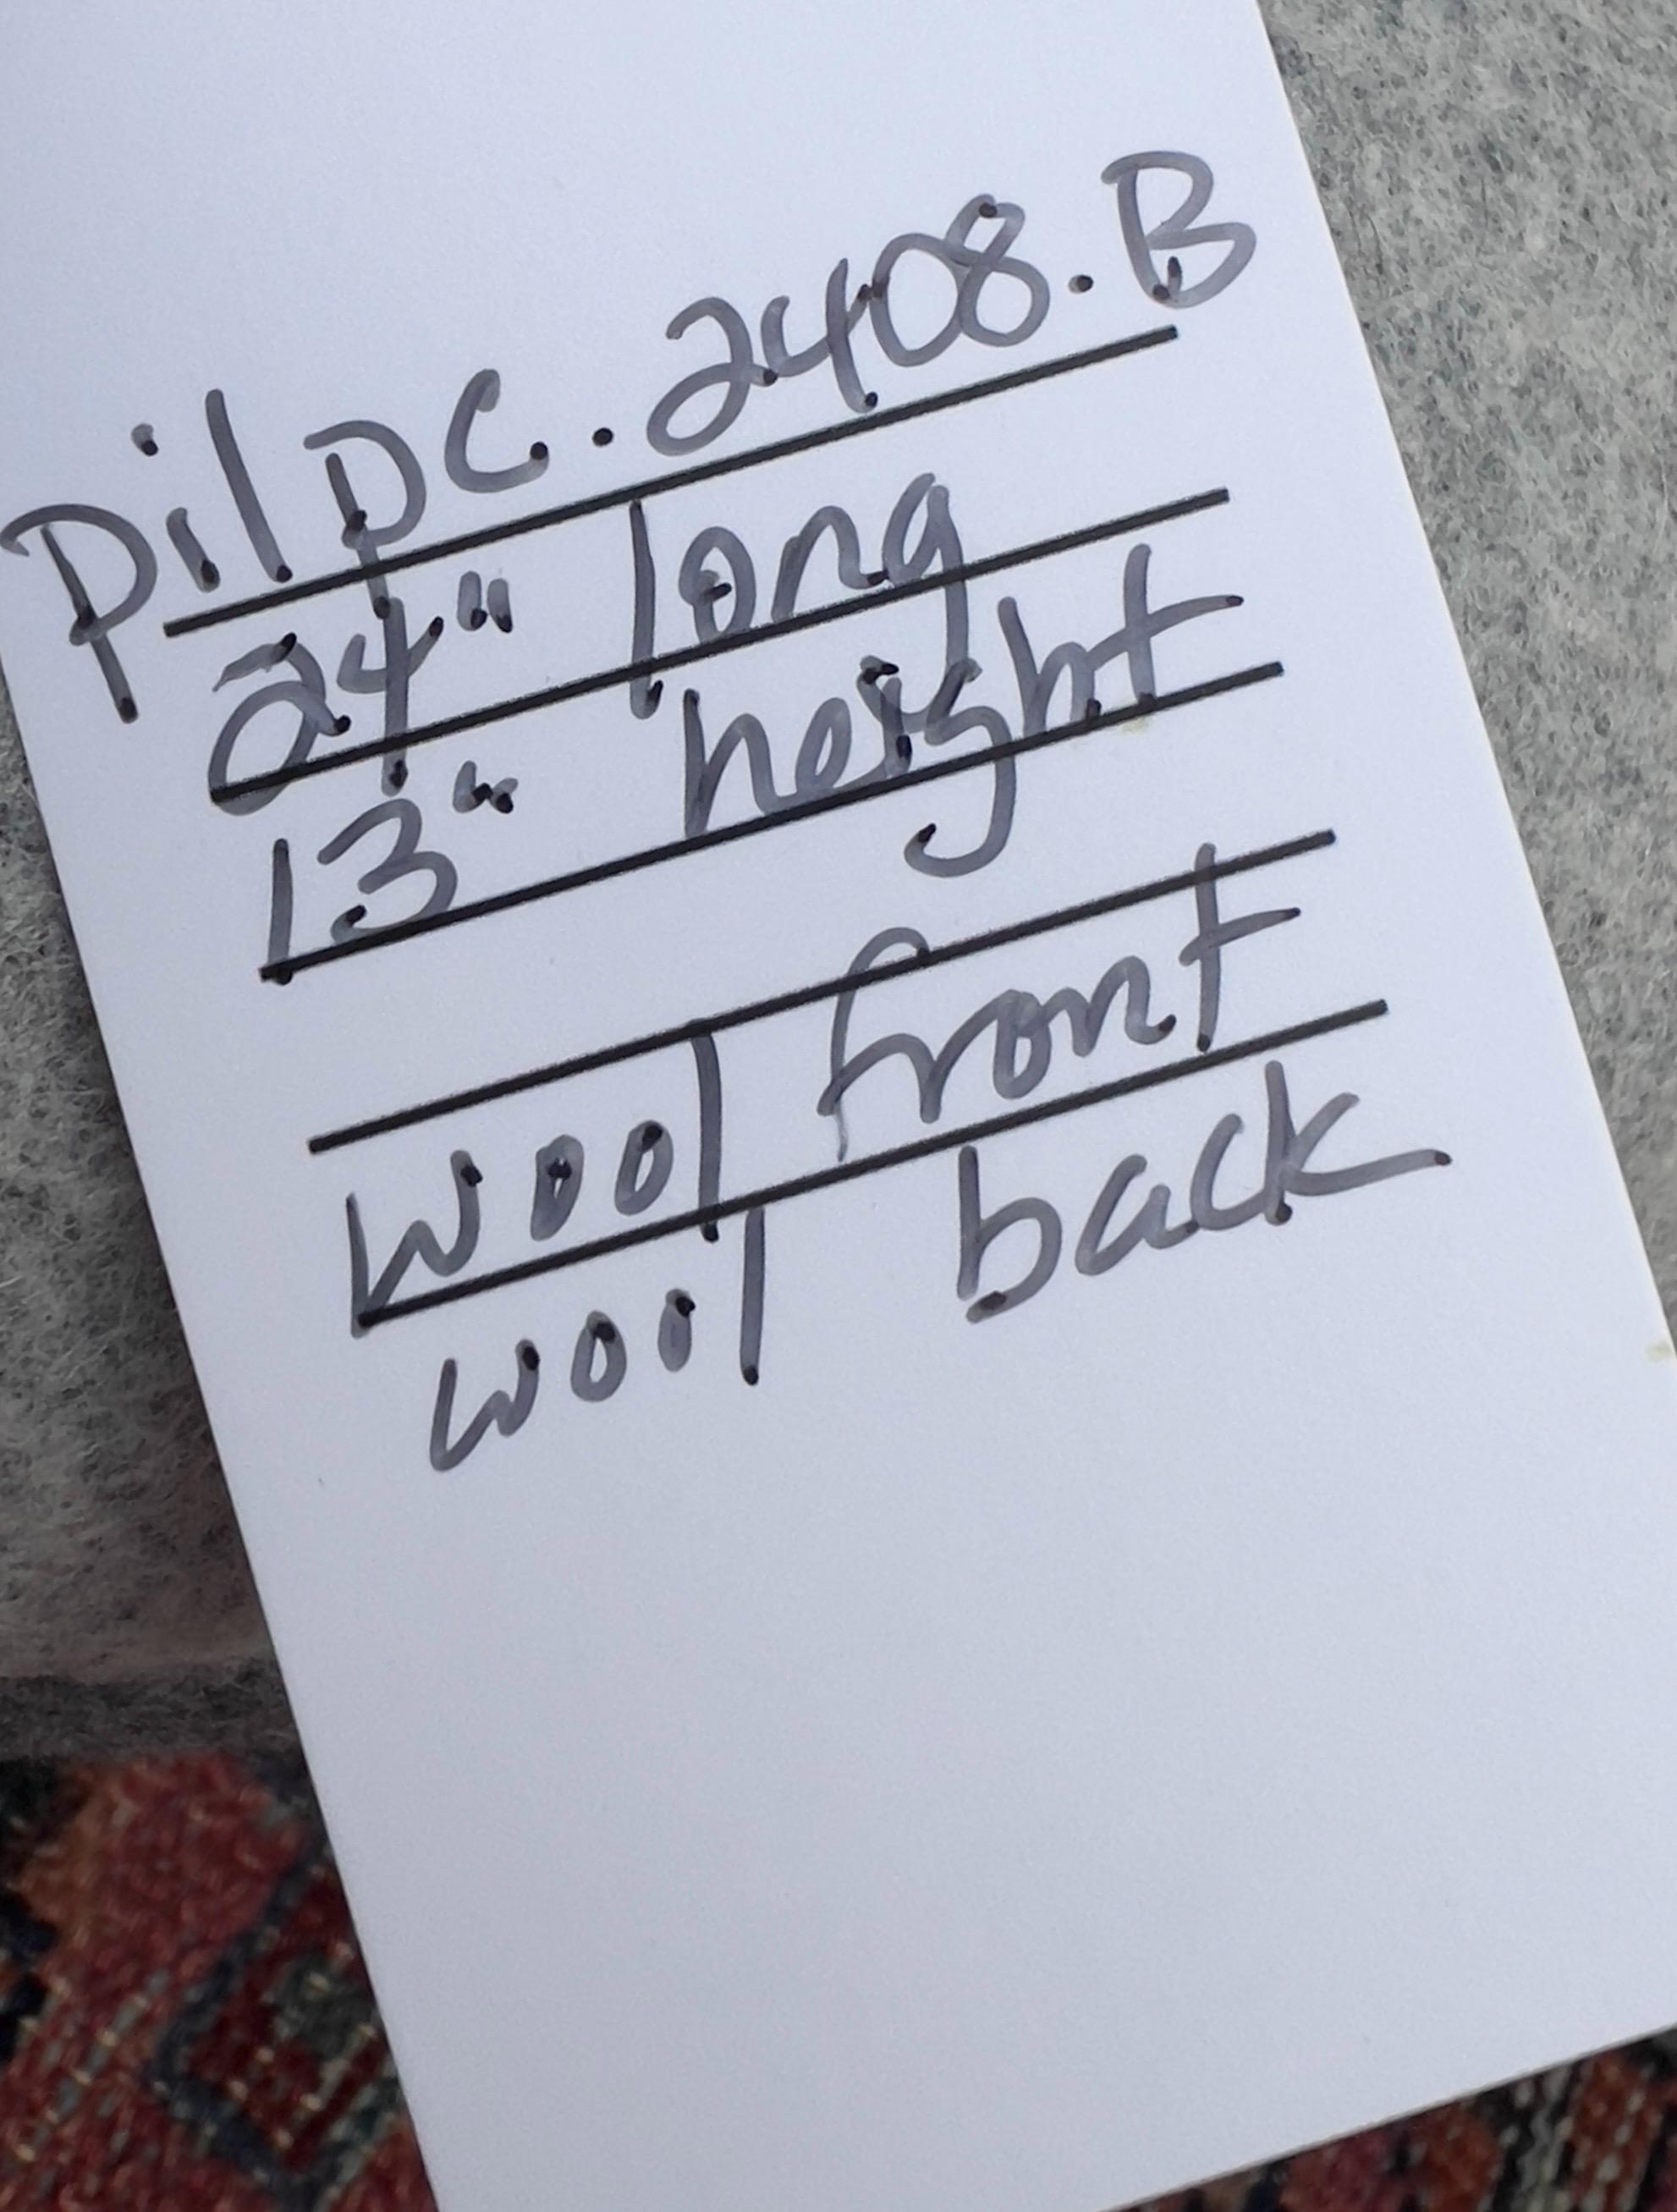 pilpc.2408.B
24" long
13" height
wool front
wool back